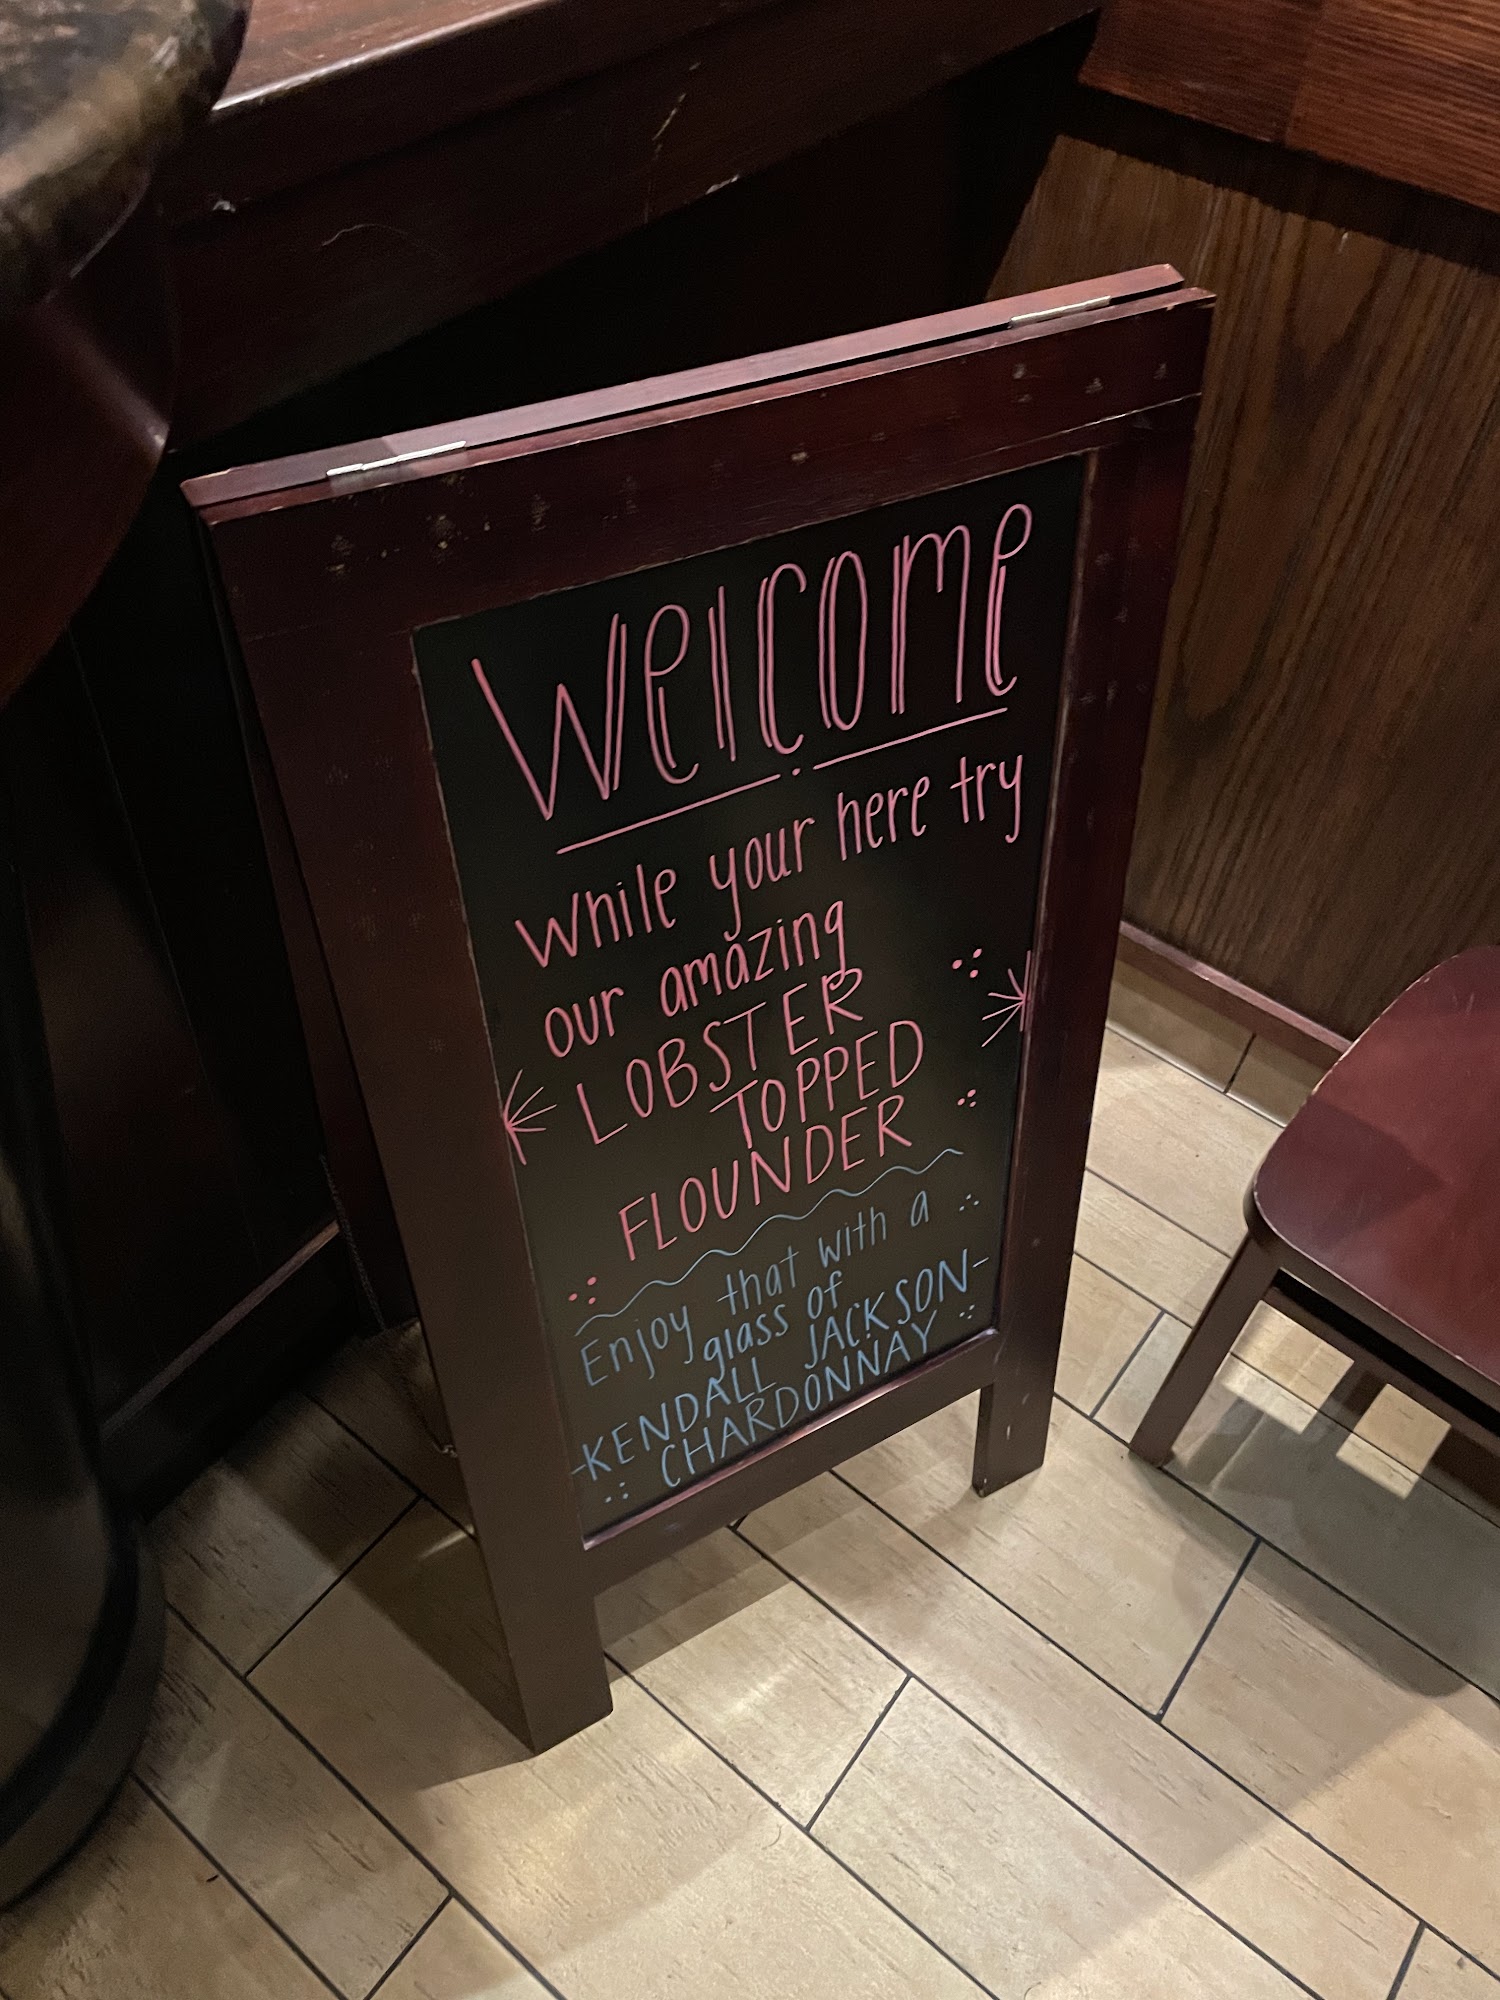 Welcome
while your here try
our amazing
LOBSTER
TOPPED
FLOUNDER
Enjoy that with a
glass of
-KENDALL JACKSON-
CHARDONNAY